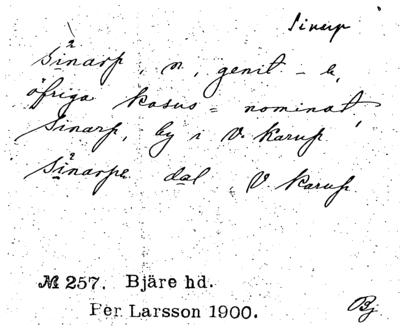 Sinarp
sinarp, n, genit – e,
öfriga kasus = nominat,
Sinarp, by i V. Karup
sinarpe dal V Karup
№ 257. Bjäre hd.
Per Larsson 1900.
Bj